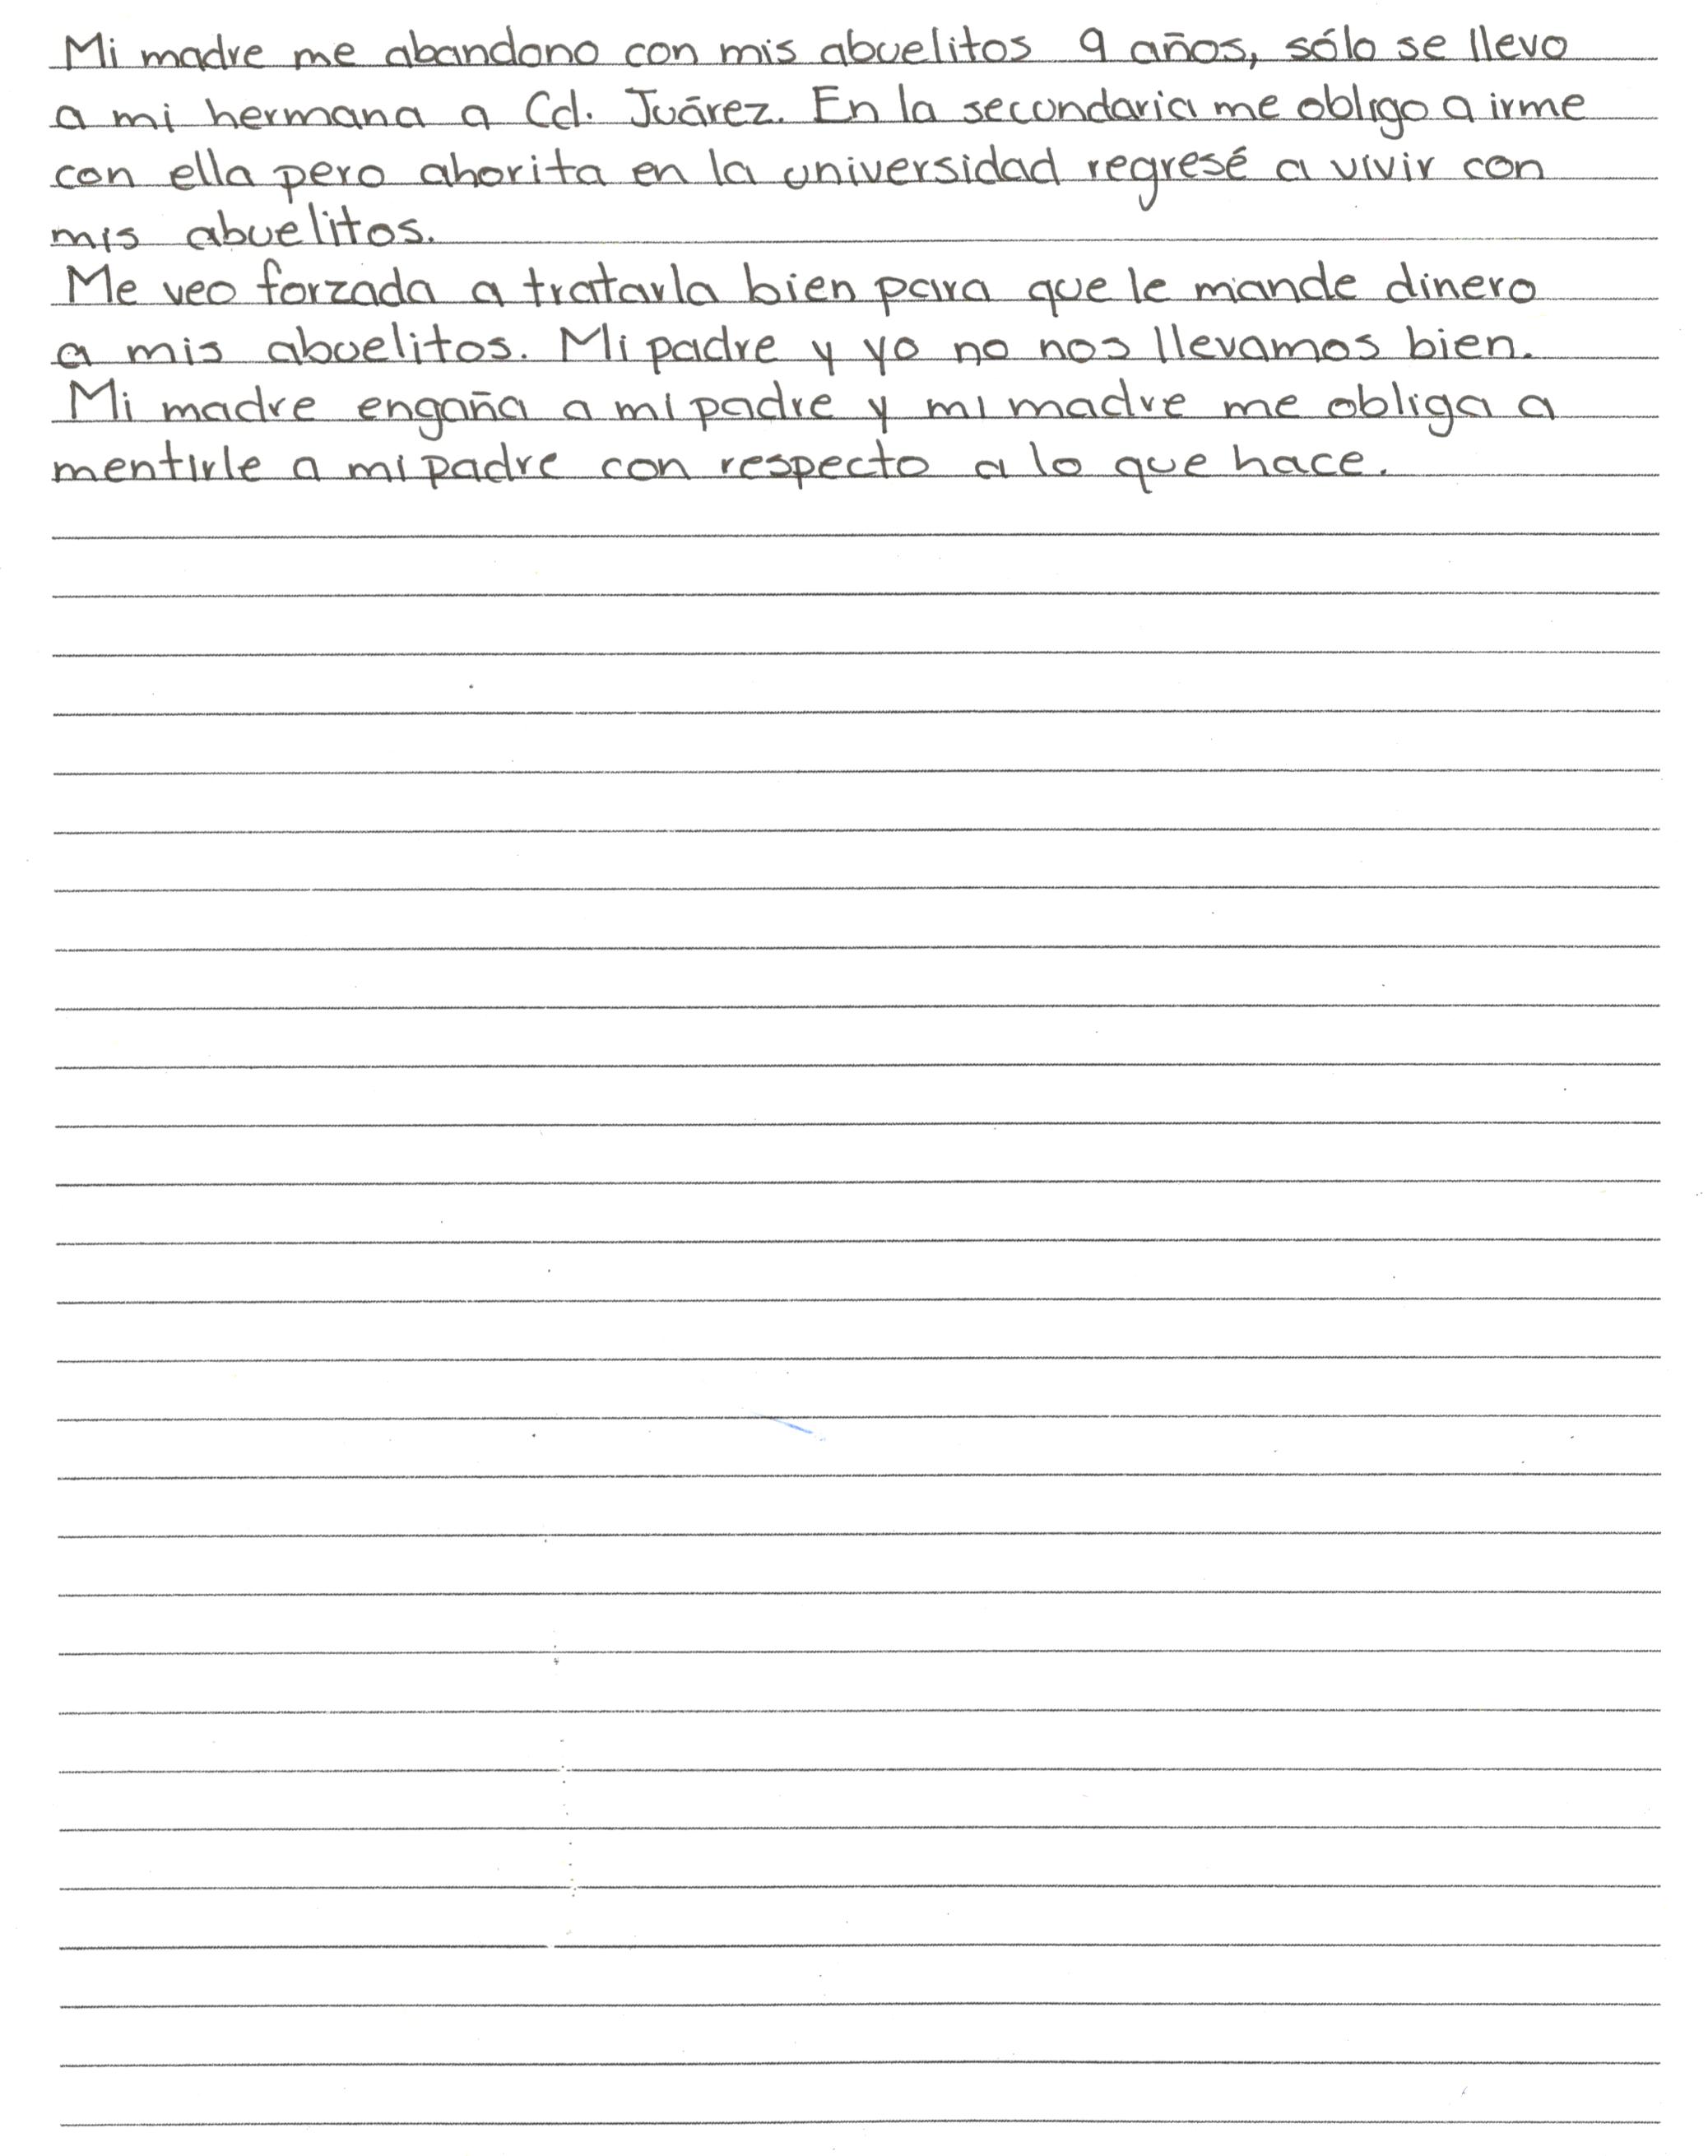 Mi madre me abandono con mis abuelitos 9 años, sólo se llevo
a mi hermana a Cd. Juárez. En la secundaria me obligo a irme
con ella pero ahorita en la universidad regresé a vivir con
mis abuelitos.
Me veo forzada a tratarla bien para que le mande dinero
a mis abuelitos. Mi padre y yo no nos llevamos bien.
Mi madre engaña a mi padre y mi madre me obliga a
mentirle a mi padre con respecto a lo que hace.